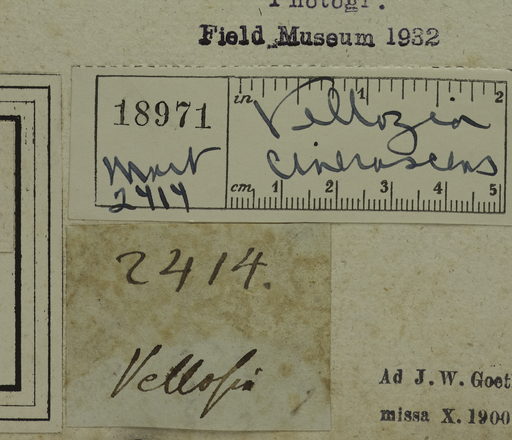 Photogr.
Field Museum 1932
18971
Mart
2414
in 1 2
Vellozia
cinerascens
cm 1 2 3 4 5
2414.
Vellosia
Ad J. W. Goet
missa X. 1900